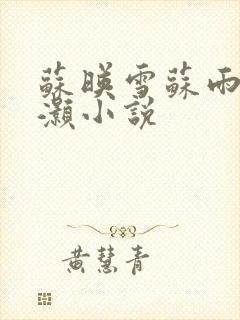 蘇暎雪蘇雨
灝小説
黄慧青